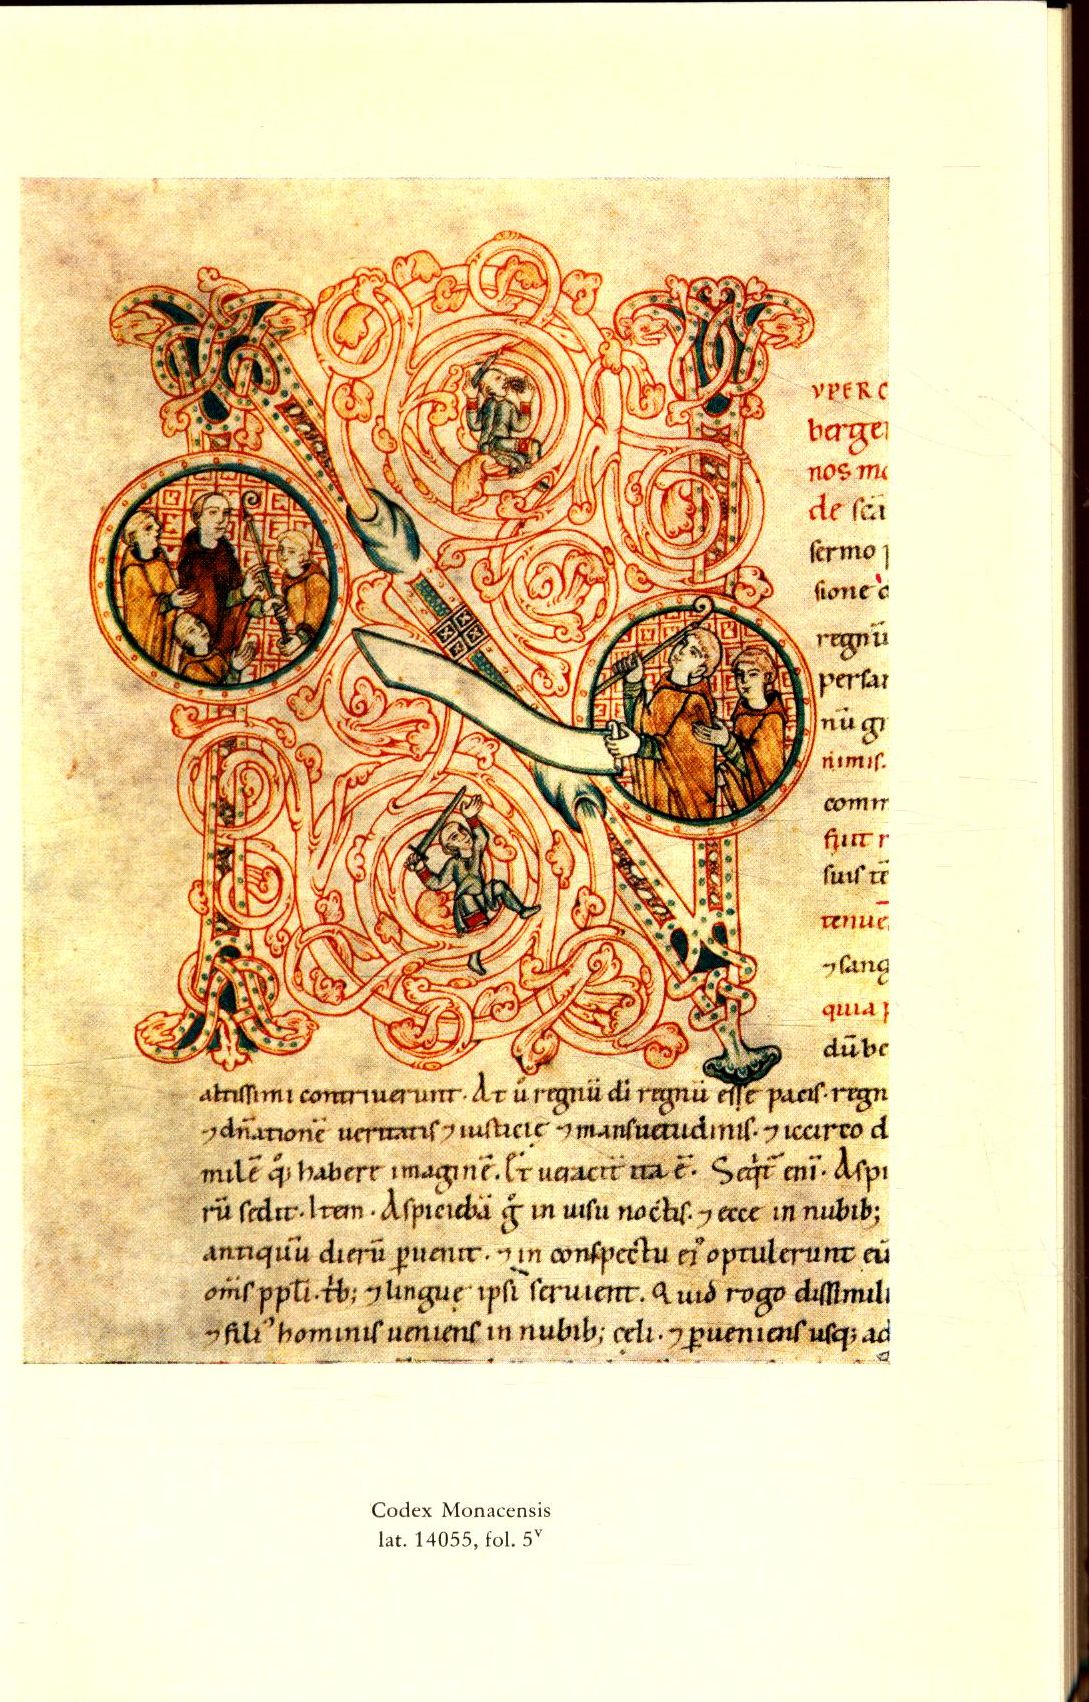 N
VPER C
berge
nos mo
de scā
sermo p
sione
regnū
persar
nū gr
nimis.
comm
fiut r
suis tē
tenue
⁊ sang
quia p
dū be
altissimi contriuerunt. At ū regnū di regnū esse pacis. regn
⁊ dn̄atione ueritatis ⁊ iusticię ⁊ mansuetudinis. ⁊ iccirco d
habere imaginē. Et ueracit̄ ita ē. Seqt̄ eni. Aspi
rū sedit. Item. Aspiciebā g̊ in uisu noctis. ⁊ ecce in nubib;
antiquū dierū puenit. ⁊ in conspectu ei' optulerunt eū
om̄s ppli. ⁊ linguę ipsi seruient. Quid rogo dissimili
⁊ fili' hominis ueniens in nubib; celi. ⁊ pueniens usq; ad
Codex Monacensis
lat. 14055, fol. 5v